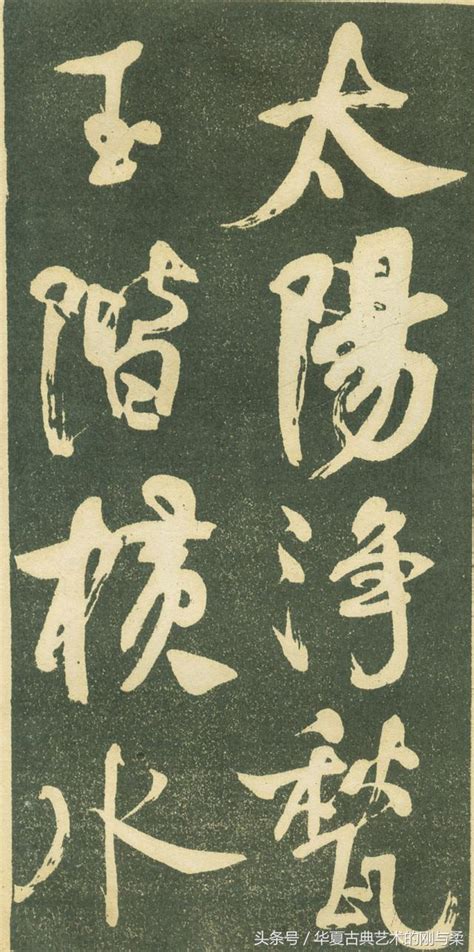 太陽浄甃
玉階横水
头条号 / 华夏古典艺术的刚与柔